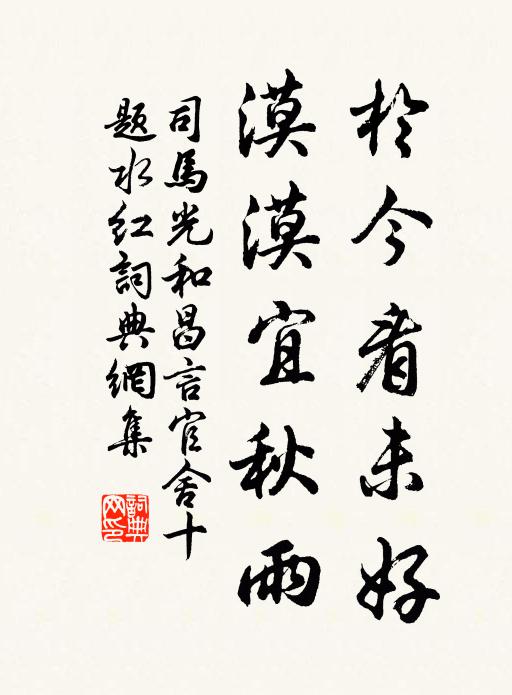 於今看未好
漠漠宜秋雨
司馬光和昌言官舍十
題水红詞典網集
詞典
网印